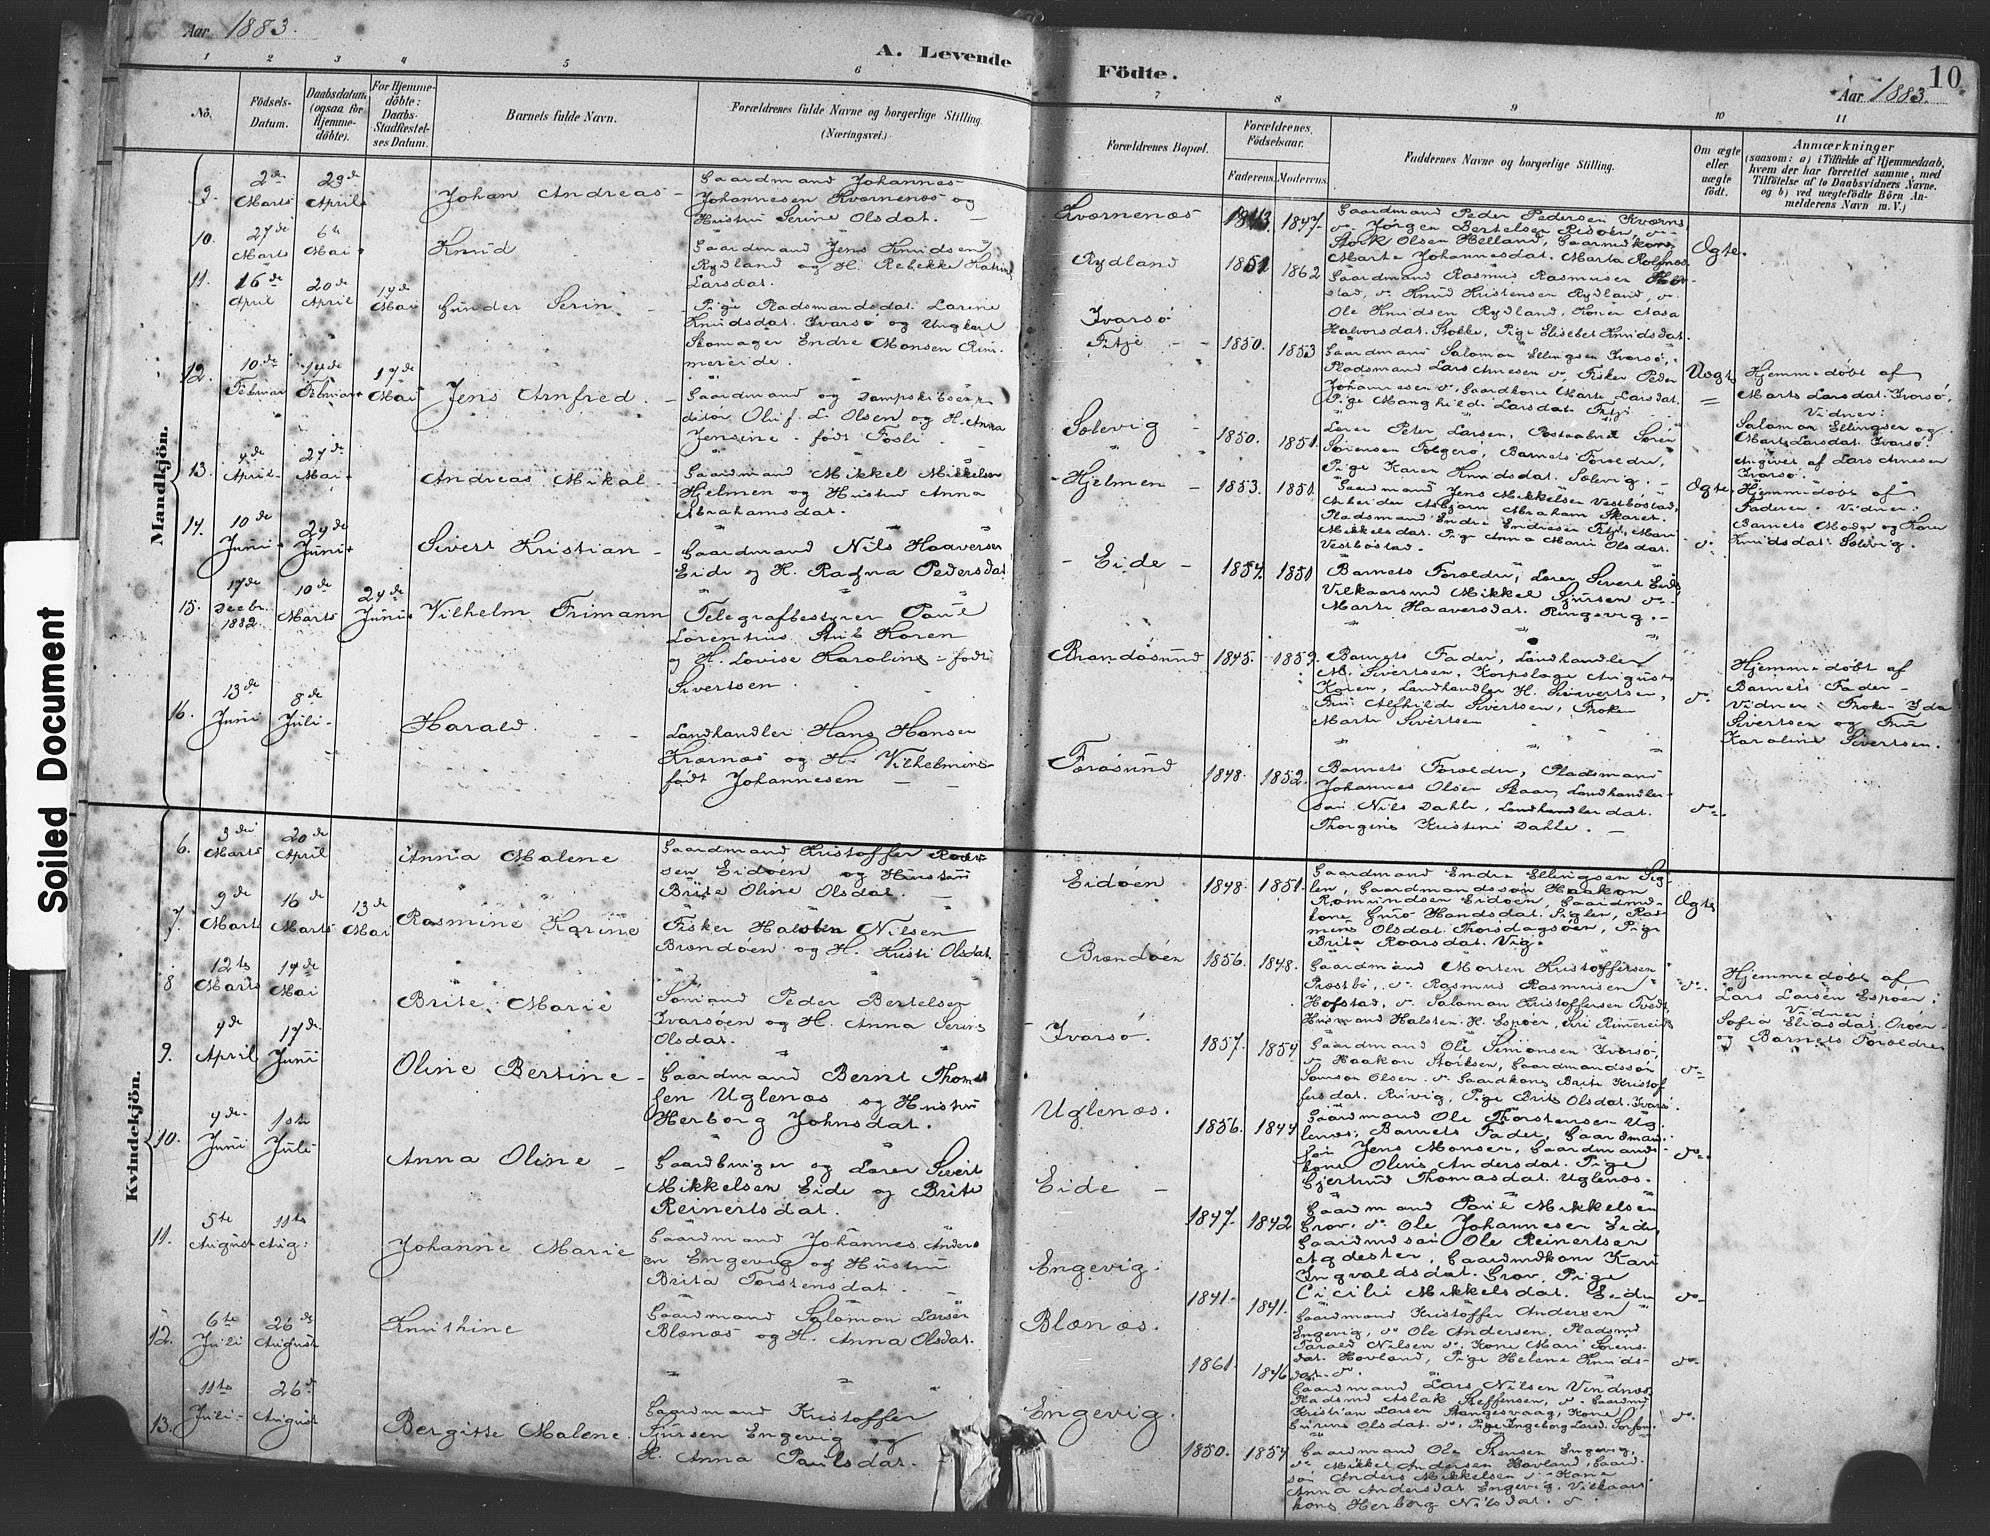 Aar 1883.
A. Levende Födte.
Aar 1883.
10
1 2 3 4 5 6 7 8 9 10 11
No.
Födsels-
Datum.
Daabsdatum
(ogsaa for
Hjemme-
döbte).
For Hjemme-
döbte:
Daabs-
Stadfæstel-
ses Datum.
Barnets fulde Navn.
Forældrenes fulde Navne og borgerlige Stilling.
(Næringsvei.)
Forældrenes Bopæl.
Forældrenes
Födselsaar.
Faderens. Moderens.
Faddernes Navne og borgerlige Stilling.
Om ægte
eller
uægte
födt.
Anmærkninger
(saasom: a) i Tilfælde af Hjemmedaab,
hvem der har forrettet samme, med
Tilföielse af to Daabsvidners Navne,
og b) ved uægtefödte Börn An-
melderens Navn m. V.)
Mandkjön.
9. 2de Marts 29de April
Johan Andreas
Gaardmand Johannes
Johannesen Kværnenæs og
Hustru Serine Olsdat.
Kværnenæs 1843. 1847.
Gaardmand Peder Pedersen Kværne
do Jørgen Bertelsen Risøen, do
Stork Olsen Helland, Gaardmdkone
Marte Johannesdat. Marta
Ægte.
10. 27de Marts 6te Mai
Knud
Gaardmand Jens Knudsen
Rydland og H. Rebekke Katrine
Larsdat.
Rydland 1851 1862
Gaardmand Rasmus Rasmusen Hof-
stad, do Knud Kristensen Rydland, do
Ole Knudsen Rydland, Konen Aasa
Halvorsdat. Stokke, Pige Elisebet Knudsdat.
11. 16de April 20de April 14de Mai
Gunder Serin
Pige Pladsmandsdat. Larine
Knudsdat. Ivarsø og Ungkarl
Skomager Endre Monsen Rim-
mereide.
Ivarsø
Fitje 1850. 1853
Gaardmand Salamon Ellingsen Ivarsø,
Pladsmand Lars Arnesen do Fisker Peder
Johannesen do, Gaardkone Marte Larsdat.
Pige Manghild Larsdat. Fitje
Uægte
Hjemmedøbt af
Marte Larsdat. Ivarsø,
Vidner:
Salamon Ellingsen og
Marte Larsdat. Ivarsø.
Angivet af Lars Arnesen
Ivarsø.
12. 10de Februar 14de Februar 14de Mai
Jens Arnfred
Gaardmand og Dampskibsexpe-
ditør Oluf L. Olsen og H. Anna
Jensine født Fosli
Sælevig 1850. 1851.
Lærer Peter Larsen, Postaabner Søren
Sørensen Folgerø, Barnets Forældre,
Pige Karen Knudsdat. Sælevig.
Ægte
Hjemmedøbt af
Faderen. Vidner:
Barnets Moder og Karen
Knudsdat. Sælevig.
13. 4de April 27de Mai
Andreas Mikal
Gaardmand Mikkel Mikkelsen
Hjelmen og Hustru Anna
Abrahamsdat.
Hjelmen 1853. 1851.
Gaardmand Jens Mikkelsen Vestbøstad,
Arbeider Asbjørn Abraham Skaret.
Pladsmand Endre Endresen Fitje, Mari
Mikkelsdat. Pige Anna Marie Olsdat.
Vestbøstad.
do
14. 10de Juni 24de Juni
Sivert Kristian
Gaardmand Nils Haaversen
Eide og H. Ragna Pedersdat.
Eide 1854. 1850
Barnets Forældre, Lærer Sivert Eide
Vilkaarsmd Mikkel Sjursen do
Marte Haaversdat. Ringevig.
15. 17de Decbr. 1882. 10de Marts 24de Juni
Vilhelm Frimann
Telegrafbestyrer Paul
Lorentius Koren
og H. Lovise Karoline født
Sivertsen
Brandøsund 1845. 1859.
Barnets Fader, Landhandler
M. Sivertsen, Korpslæge August
Koren, Landhandler H. Sivertsen,
Fru Alfhilde Sivertsen, Frøken
Marte Sivertsen
do
Hjemmedøbt af
Barnets Fader
Vidner: Frøken Ida
Sivertsen og Fru
Karoline Sivertsen.
16. 13de Juni 8de Juli
Harald
Landhandler Hans Hansen
Kværnæs og H. Vilhelmine
født Johannesen
Færøsund 1848. 1852.
Barnets Forældre, Pladsmand
Johannes Olsen Skaar, Landhandler-
søn Nils Dahle, Landhandlerdat.
Thorgine Kristine Dahle.
do
Kvindekjön.
6. 3die Marts 20de April
Anna Malene
Gaardmand Kristoffer Roar-
sen Eidøen og Hustru
Brite Oline Olsdat.
Eidøen 1848. 1851.
Gaardmand Endre Ellingsen Sig-
len, Gaardmandssøn Haakon
Romundsen Eidøen, Gaardmd-
kone Guro Handsdat. Siglen, Ras-
mine Olsdat. Thorsdagsøen, Pige
Brita Roarsdat. Vig.
Ægte
7. 9de Marts 16de Marts 13de Mai
Rasmine Karine
Fisker Halsten Nilsen
Brandøen og H. Kristi Olsdat.
Brandøen 1856. 1848.
Gaardmand Morten Kristoffersen
Præstbø, do Rasmus Rasmusen
Hofstad, do Salamon Kristoffersen Tvedt
Husmand Halsten H. Espøen, Siri Rimereide
do
Hjemmedøbt af
Lars Larsen Espøen;
Vidner:
Sofia Eliasdat. Orøen
og Barnets Forældre
8 12te Marts 14de Mai
Brite Marie
Sømand Peder Bertelsen
Ivarsøen og H. Anna Serine
Olsdat.
Ivarsø. 1857. 1854
Gaardmand Ole Simonsen Ivarsø,
do Haakon Storksen, Gaardmandssøn
Samson Olsen do Gaardkone Brite Kristof
fersdat. Risvig, Pige Brite Olsdat. Ivarsø.
do
9. 4de April 17de Juni
Oline Bertine
Gaardmand Bernt Thom-
sen Uglenæs og Hustru
Herborg Johnsdat.
Uglenæs. 1856. 1844
Gaardmand Ole Thorstensen Ug-
lenæs, Barnets Fader, Gaardmand-
søn Jens Monsen, Gaardmands-
kone Oline Andersdat. Pige
Gjertrud Thomasdat. Uglenæs.
do
10. 4de Juni 1ste Juli
Anna Oline
Gaardbruger og Lærer Sivert
Mikkelsen Eide og Brite
Reinertsdat.
Eide 1847. 1842
Gaardmand Paul Mikkelsen
Grov, do Ole Johannesen Eide,
Gaardmdsøn Ole Reinertsen
Agdester, Gaardmdkone Kari
Ingvaldsdat. Grov, Pige
Cicilie Mikkelsdat. Eide
do
11. 5te August 11te Aug:
Johanne Marie
Gaardmand Johannes Anders
en Engevig og Hustru
Brita Torstensdat.
Engevig. 1841. 1841.
Gaardmand Kristoffer Andersen
Engevig, do Ole Andersen. Pladsmd
Tarald Nilsen do Kone Mari Sørens-
dat. Hovland, Pige Helene Knuds-
dat. do
do
12. 6te Juli 26de August
Knuthine
Gaardmand Salomon Larsen
Blænæs og H. Anna Olsdat.
Blænæs. 1861. 1846
Gaardmand Lars Nilsen Vindnæs
Pladsmd Aslak Steffensen, do Gaardmd
Kristian Larsen Stangesvaag, Kone
Olsdat. do, Pige Ingeborg Larsd.
do
13. 11te Juli 26de August
Bergitte Malene.
Gaardmand Kristoffer
Sjursen Engevig og
H. Anna Paulsdat.
Engevig. 1850. 1854
Gaardmand Ole Stensen Engevig,
do Mikkel Andersen Hovland, Gaard-
søn Anders Mikkelsen do Kone
Anna Andersdat Engevig, Vilkaars-
kone Herborg Nilsdat. do
Soiled Document